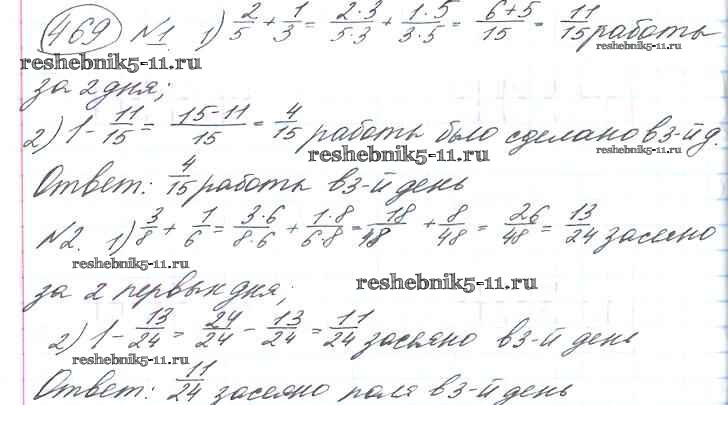 469 №1. 1) 2/5 + 1/3 = 2·3/5·3 + 1·5/3·5 = 6+5/15 = 11/15 работы
reshebnik5-11.ru
reshebnik5-11.ru
за 2 дня;
2) 1 - 11/15 = 15-11/15 = 4/15 работы было сделано в 3-й д.
reshebnik5-11.ru
reshebnik5-11.ru
Ответ: 4/15 работы в 3-й день
№2. 1) 3/8 + 1/6 = 3·6/8·6 + 1·8/6·8 = 18/48 + 8/48 = 26/48 = 13/24 засеяно
reshebnik5-11.ru
reshebnik5-11.ru
за 2 первых дня;
2) 1 - 13/24 = 24/24 - 13/24 = 11/24 засеяно в 3-й день
reshebnik5-11.ru
Ответ: 11/24 засеяно поля в 3-й день